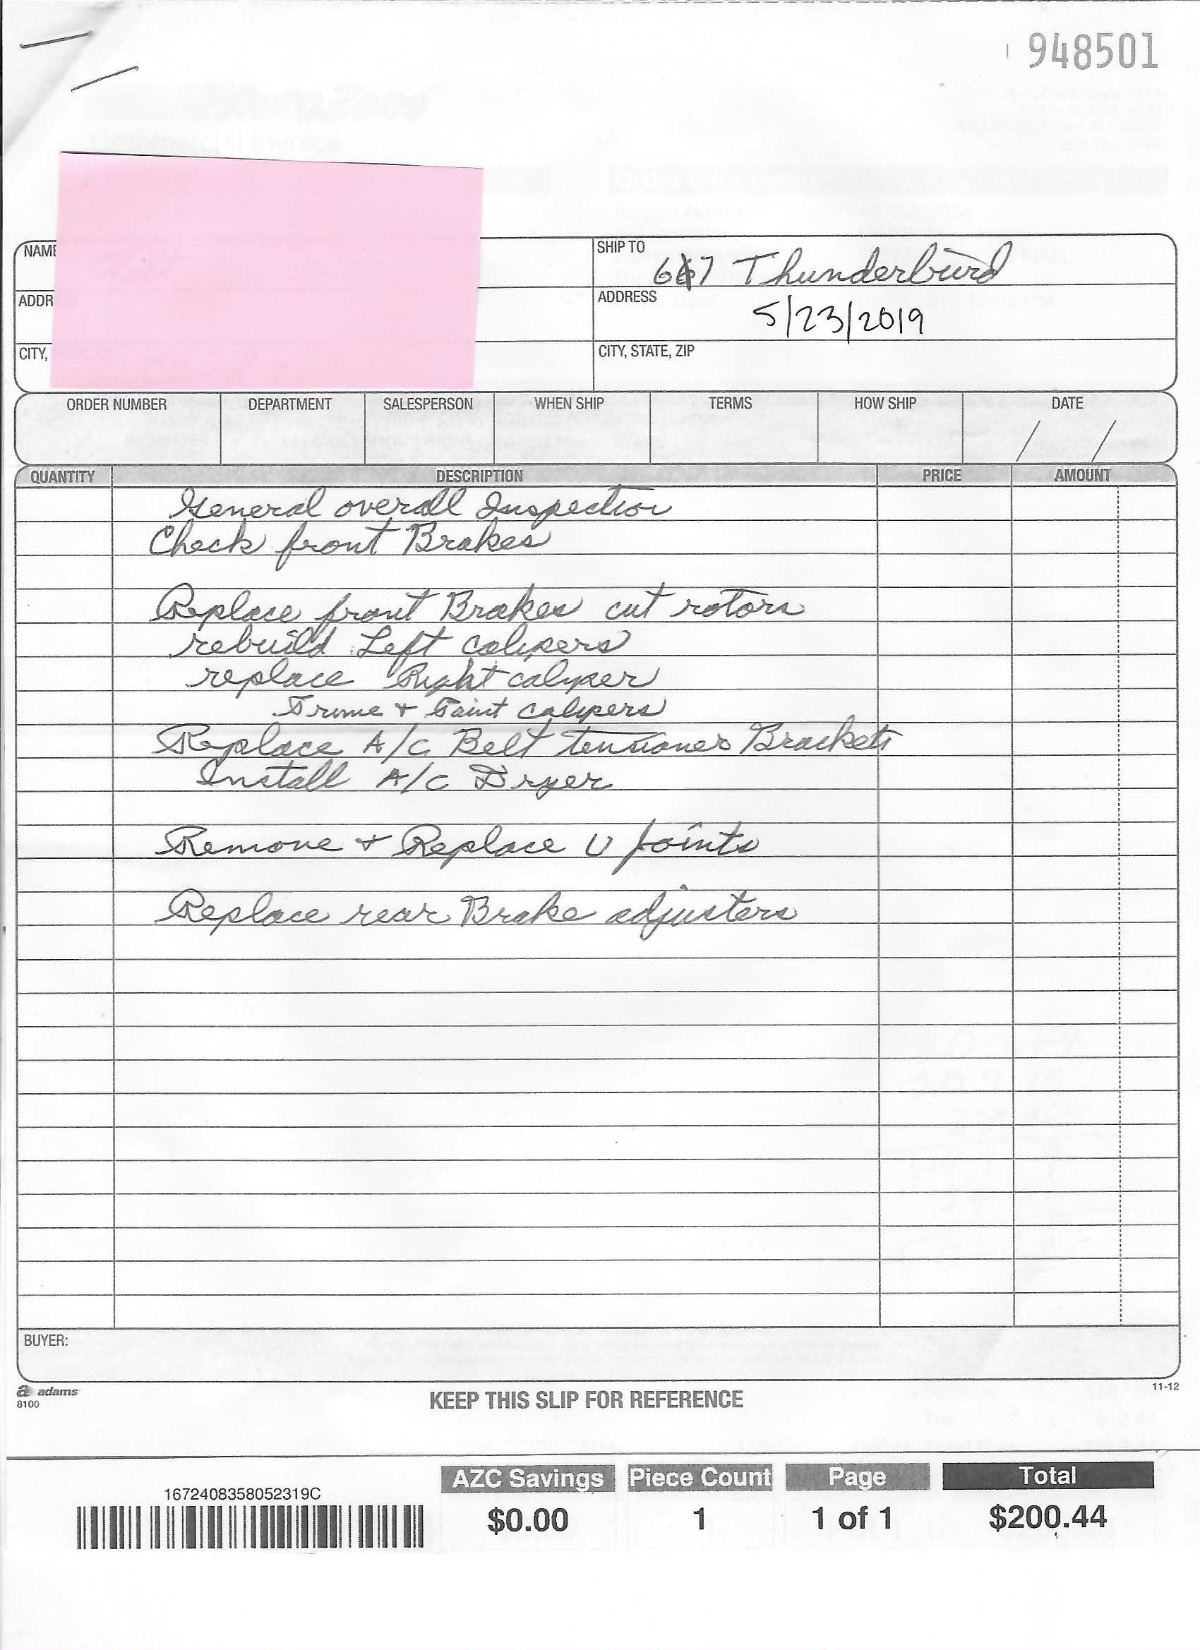 948501
NAME
SHIP TO
667 Thunderbird
ADDR
ADDRESS
5/23/2019
CITY,
CITY, STATE, ZIP
ORDER NUMBER DEPARTMENT SALESPERSON WHEN SHIP TERMS HOW SHIP DATE
/ /
QUANTITY DESCRIPTION PRICE AMOUNT
General overall Inspection
Check front Brakes
Replace front Brakes cut rotors
rebuild Left calipers
replace Right calyper
Prime + Paint calipers
Replace A/C Belt tensioner Brackets
Install A/C Dryer
Remove + Replace U joints
Replace rear Brake adjusters
BUYER:
a adams
8100
KEEP THIS SLIP FOR REFERENCE
11-12
1672408358052319C
AZC Savings Piece Count Page Total
$0.00 1 1 of 1 $200.44